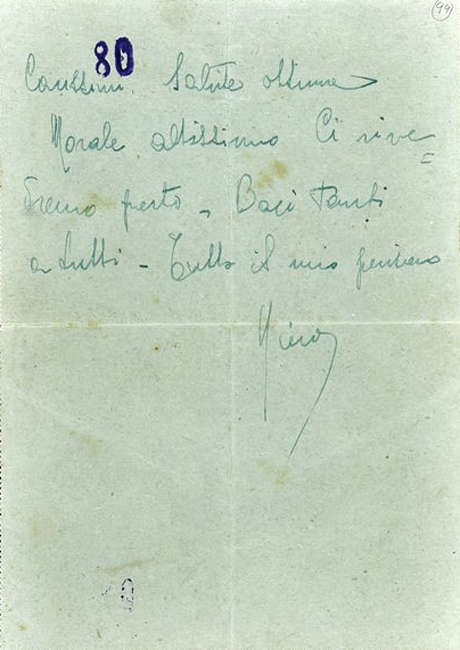 99
80
Carissimi. Salute ottima
Morale altissimo Ci rive=
dremo presto - Baci tanti
a tutti - Tutto il mio pensiero
9